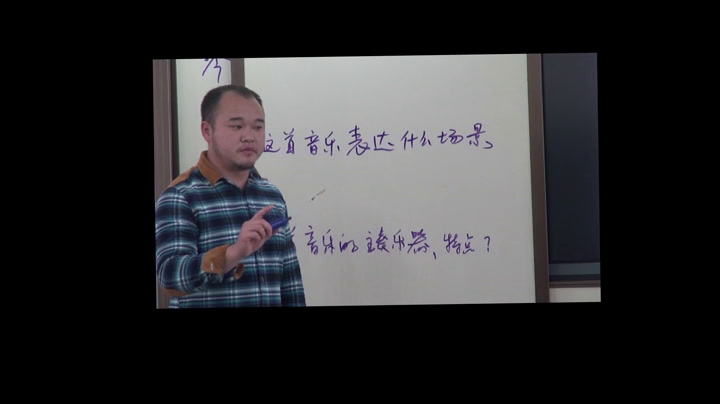 这首音乐表达什么场景、
首音乐的主奏乐器、特点？